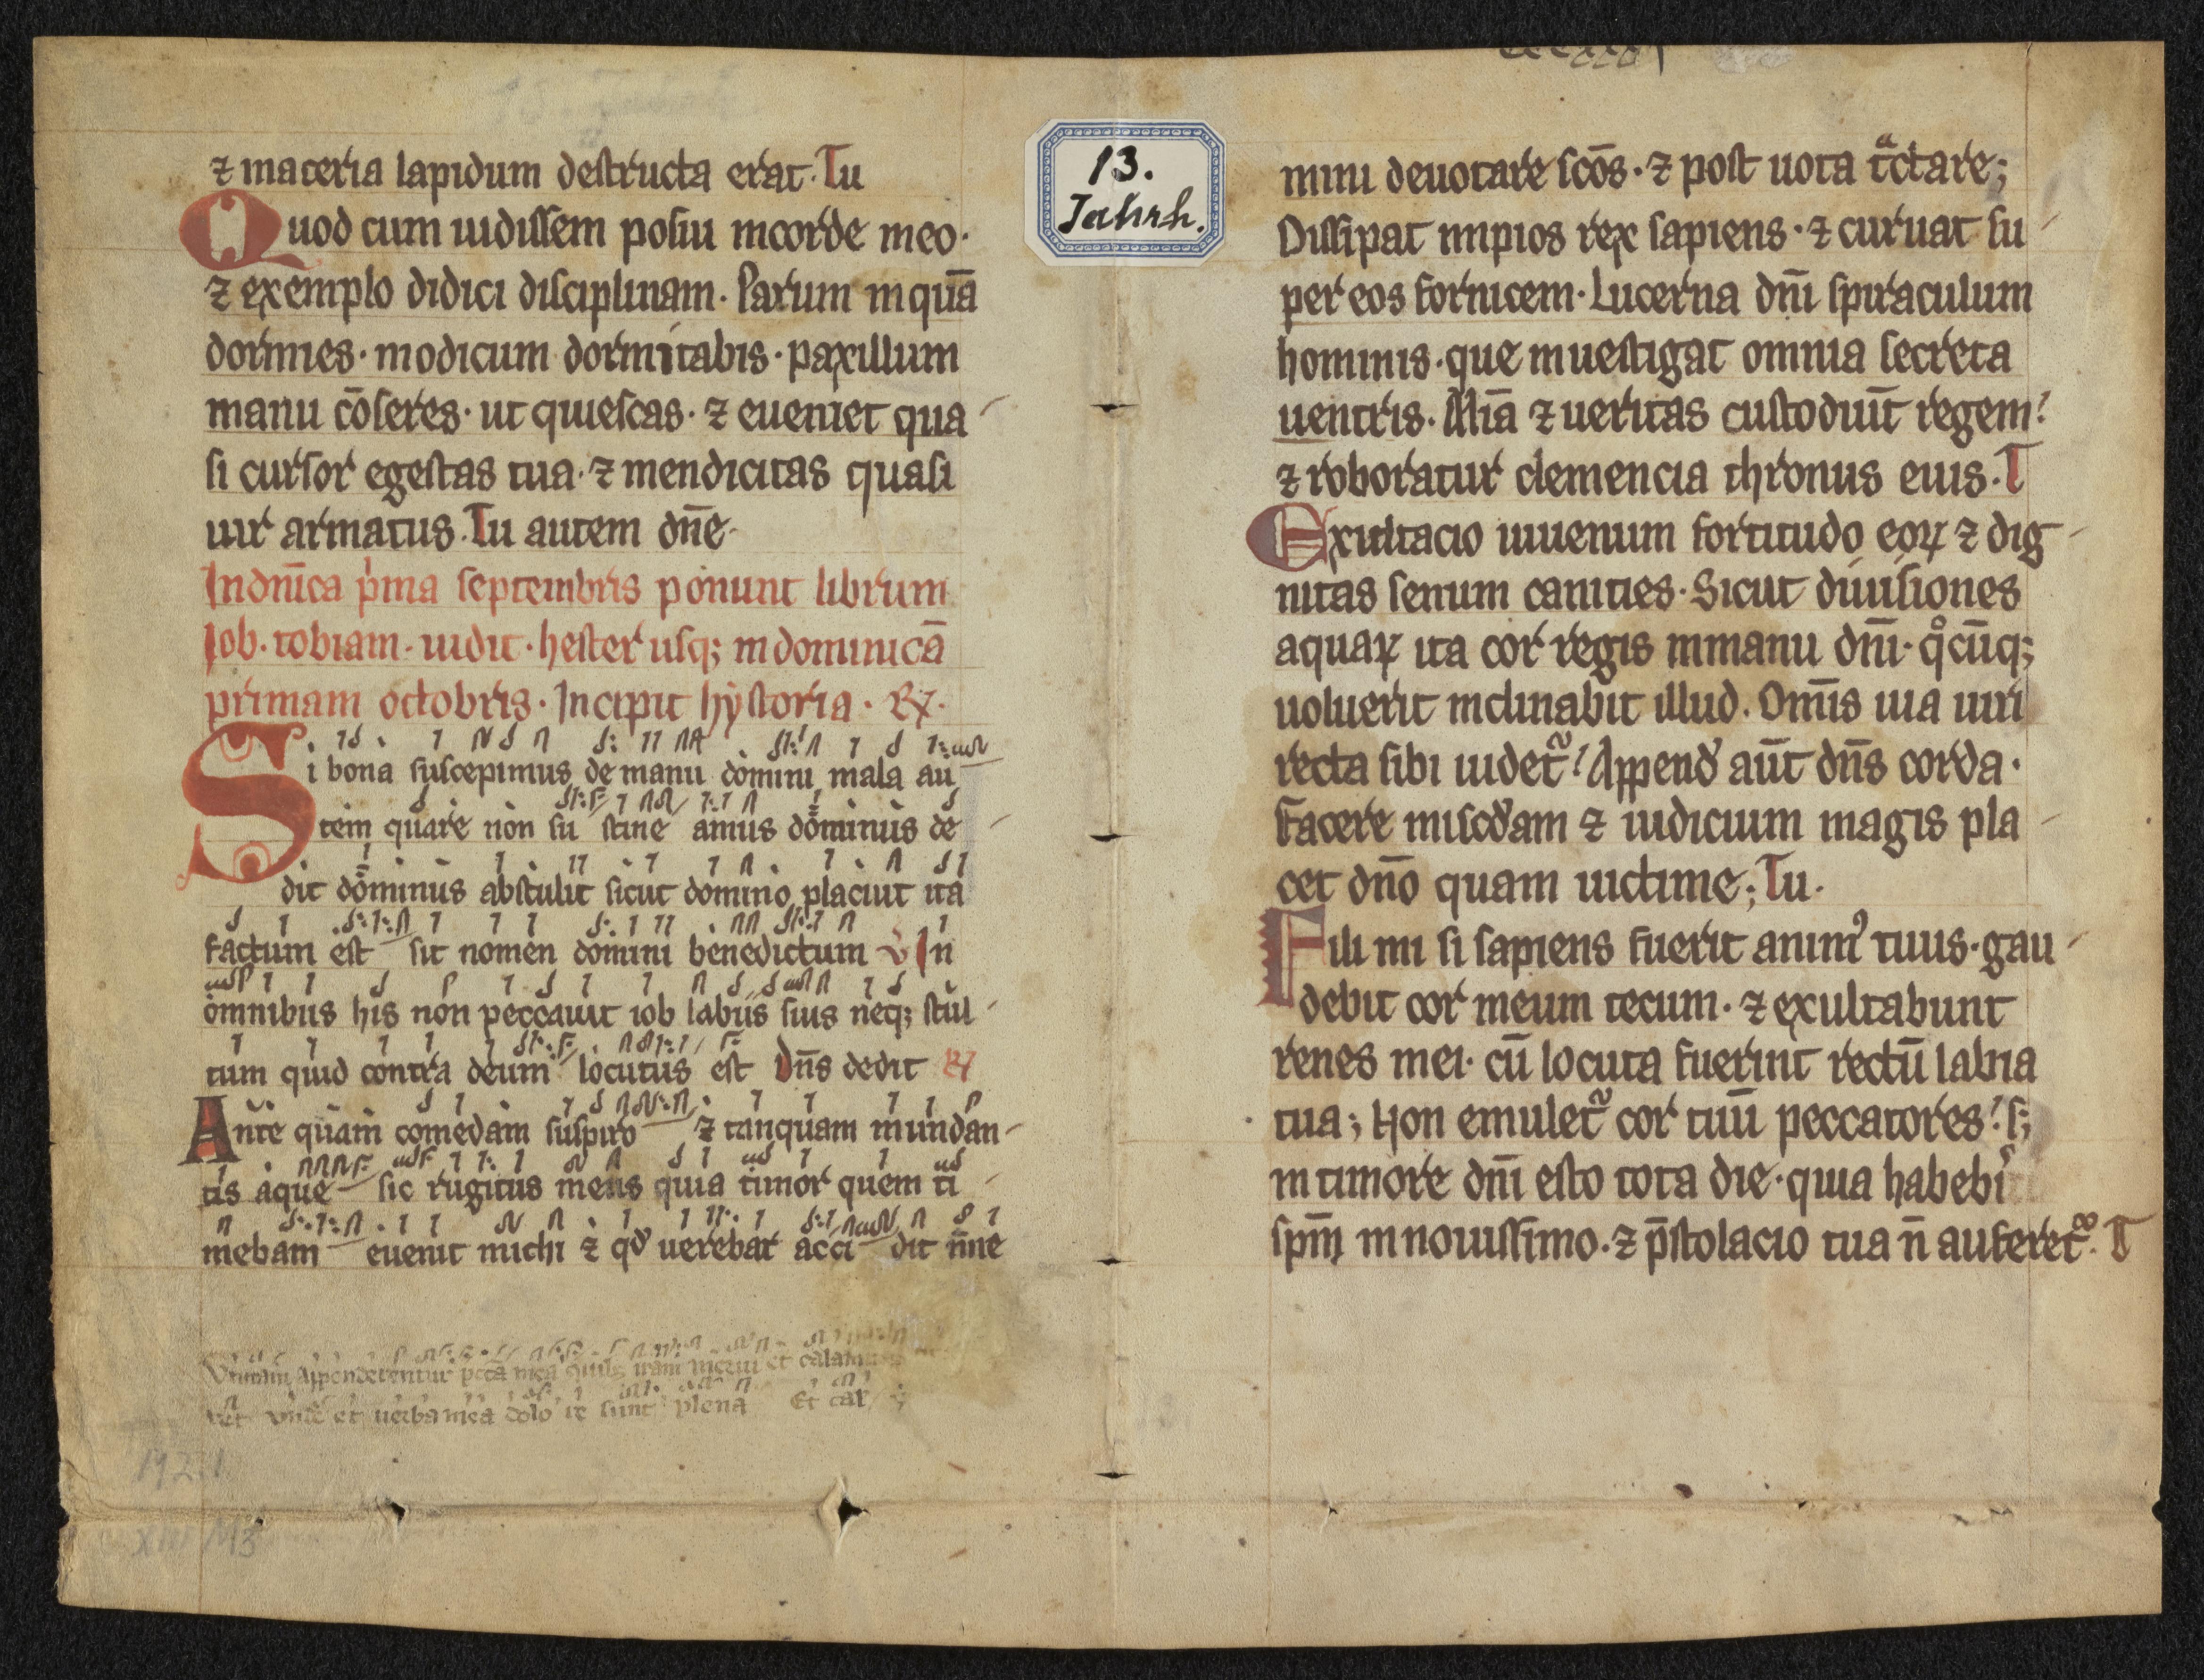 ⁊ maceria lapidum destructa erat. Tu
Quod cum uidissem posui in corde meo·
⁊ exemplo didici disciplinam. Parum inquā
dormies· modicum dormitabis· paxillum
manu cōseres· ut quiescas· ⁊ eueniet qua
si cursor egestas tua· ⁊ mendicitas quasi
uir armatus. Tu autem dn̄e·
In dn̄ica p̍ma septembris ponunt librum
Iob· tobiam· iudit· hester usq; in dominicā
primam octobris· Incipit hystoria· R̸·
Si bona suscepimus de manu domini mala au
tem quare non su stine amus dominus de
dit dominus abstulit sicut domino placuit ita
factum est sit nomen domini benedictum V In
omnibus his non peccauit iob labiis suis neq; stul
tum quid contra deum locutus est Dn̄s dedit R̸
Ante quam comedam suspiro ⁊ tanquam inundan
tis aque sic rugitus meus quia timor quem ti
mebam euenit michi ⁊ qd̕ uerebar acci dit n̄ne
Utinam appenderentur pccā mea quib; iram merui et calami
et verba mea dolo re sunt plena Et cal
13.
Jahrh.
mini deuotare scōs· ⁊ post uota tͣctare;
Dissipat impios rex sapiens· ⁊ curuat su
per eos fornicem· Lucerna dn̄i spiraculum
hominis· que inuestigat omnia secreta
uentris. Mīa ⁊ ueritas custodiūt regem!
⁊ roboratur clemencia thronus eius. T
Exultacio iuuenum fortitudo eoꝝ ⁊ dig
nitas senum canities· Sicut diuisiones
aquaꝝ ita cor regis in manu dn̄i· qͦcūq;
uoluerit inclinabit illud. Om̄is uia uiri
recta sibi uidet᷑! Append̕ aūt dn̄s corda·
Facere misc̄dam ⁊ iudicium magis pla
cet dn̄o quam uictime; Tu.
Fili mi si sapiens fuerit animꝰ tuus· gau
debit cor meum tecum· ⁊ exultabunt
renes mei· cū locuta fuerint rectū labia
tua; Non emulet᷑ cor tuū peccatores! s;
in timore dn̄i esto tota die· quia habebiˢ
spm̄ in nouissimo· ⁊ p̄stolacio tua n̄ auferet᷑. T